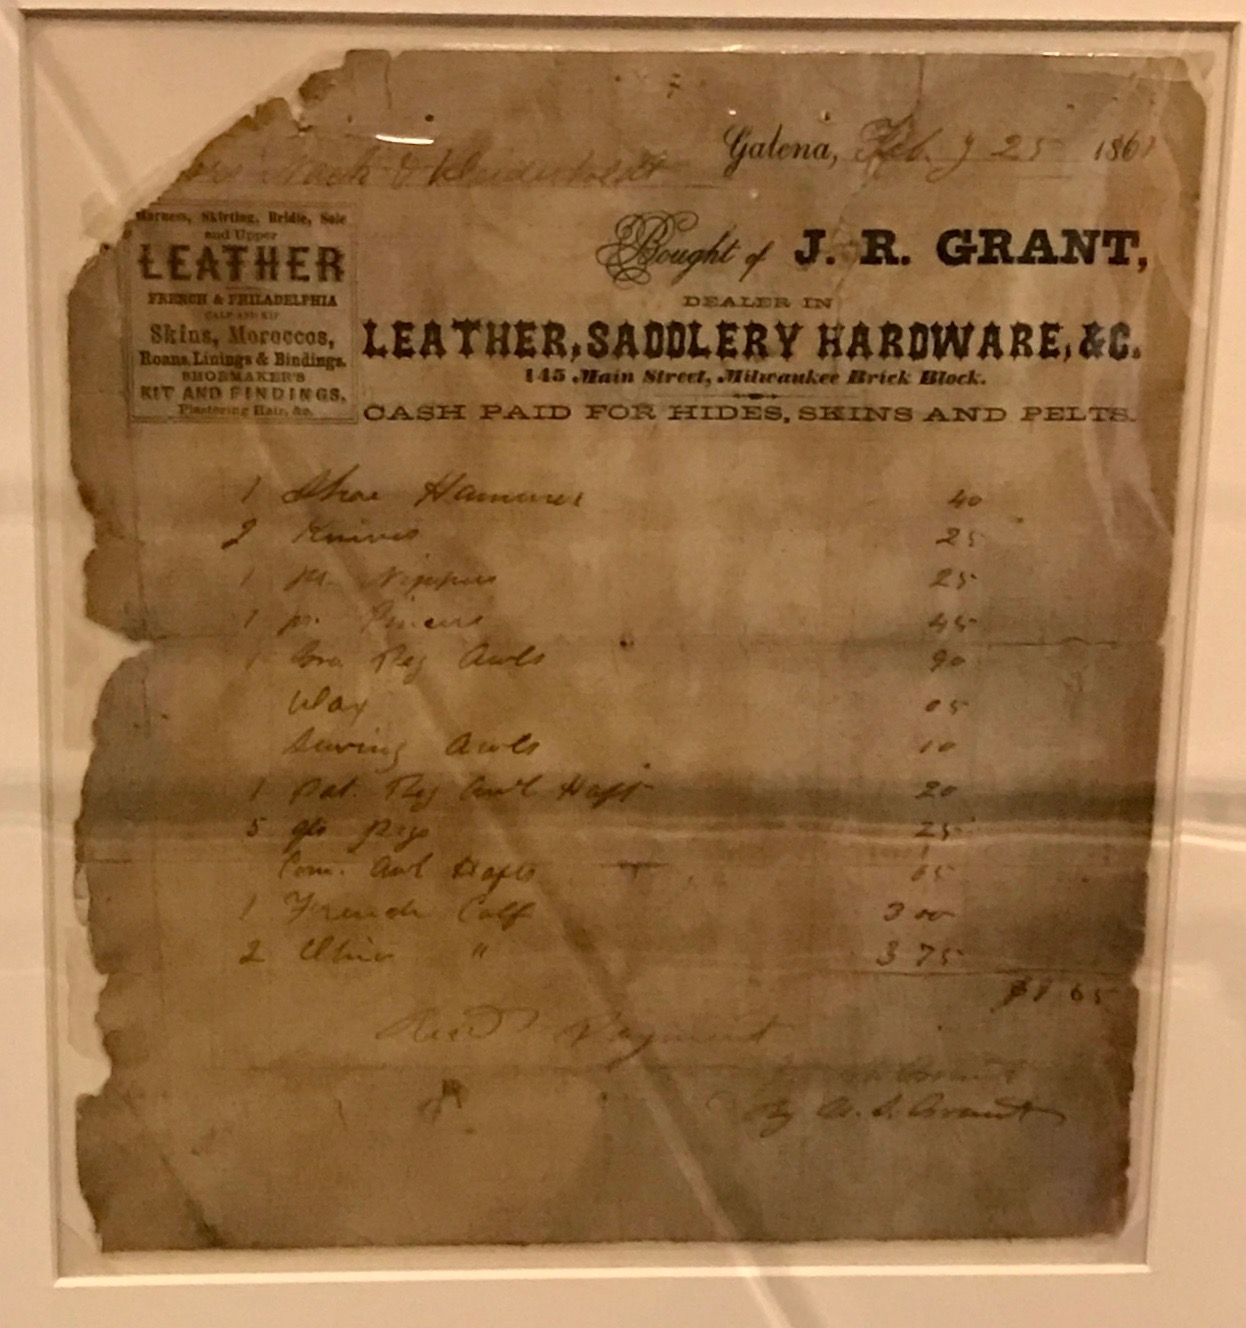 Galena, Feb. y 25 1861
Nack &
Harness, Skirting, Bridle, Sole
and Upper
LEATHER
FRENCH & PHILADELPHIA
CALF AND KIP
Skins, Moroccos,
Roans, Linings & Bindings.
SHOEMAKER'S
KIT AND FINDINGS,
Plastering Hair, &c.
Bought of J. R. GRANT,
DEALER IN
LEATHER, SADDLERY HARDWARE, &C.
145 Main Street, Milwaukee Brick Block.
CASH PAID FOR HIDES, SKINS AND PELTS.
1 Shoe Hammer 40
2 Knives 25
1 pr. Nippers 25
1 pr. Pincers 45
1 Gro. Peg Awls 90
Wax 05
Sewing Awls 10
1 Pat. Peg Awl Haft 20
5 qts pegs 25
Com. Awl Hafts 05
1 French Calf 3 00
2 Ohio " 3 75
$9 65
Rec'd Payment
Grant
By U. S. Grant